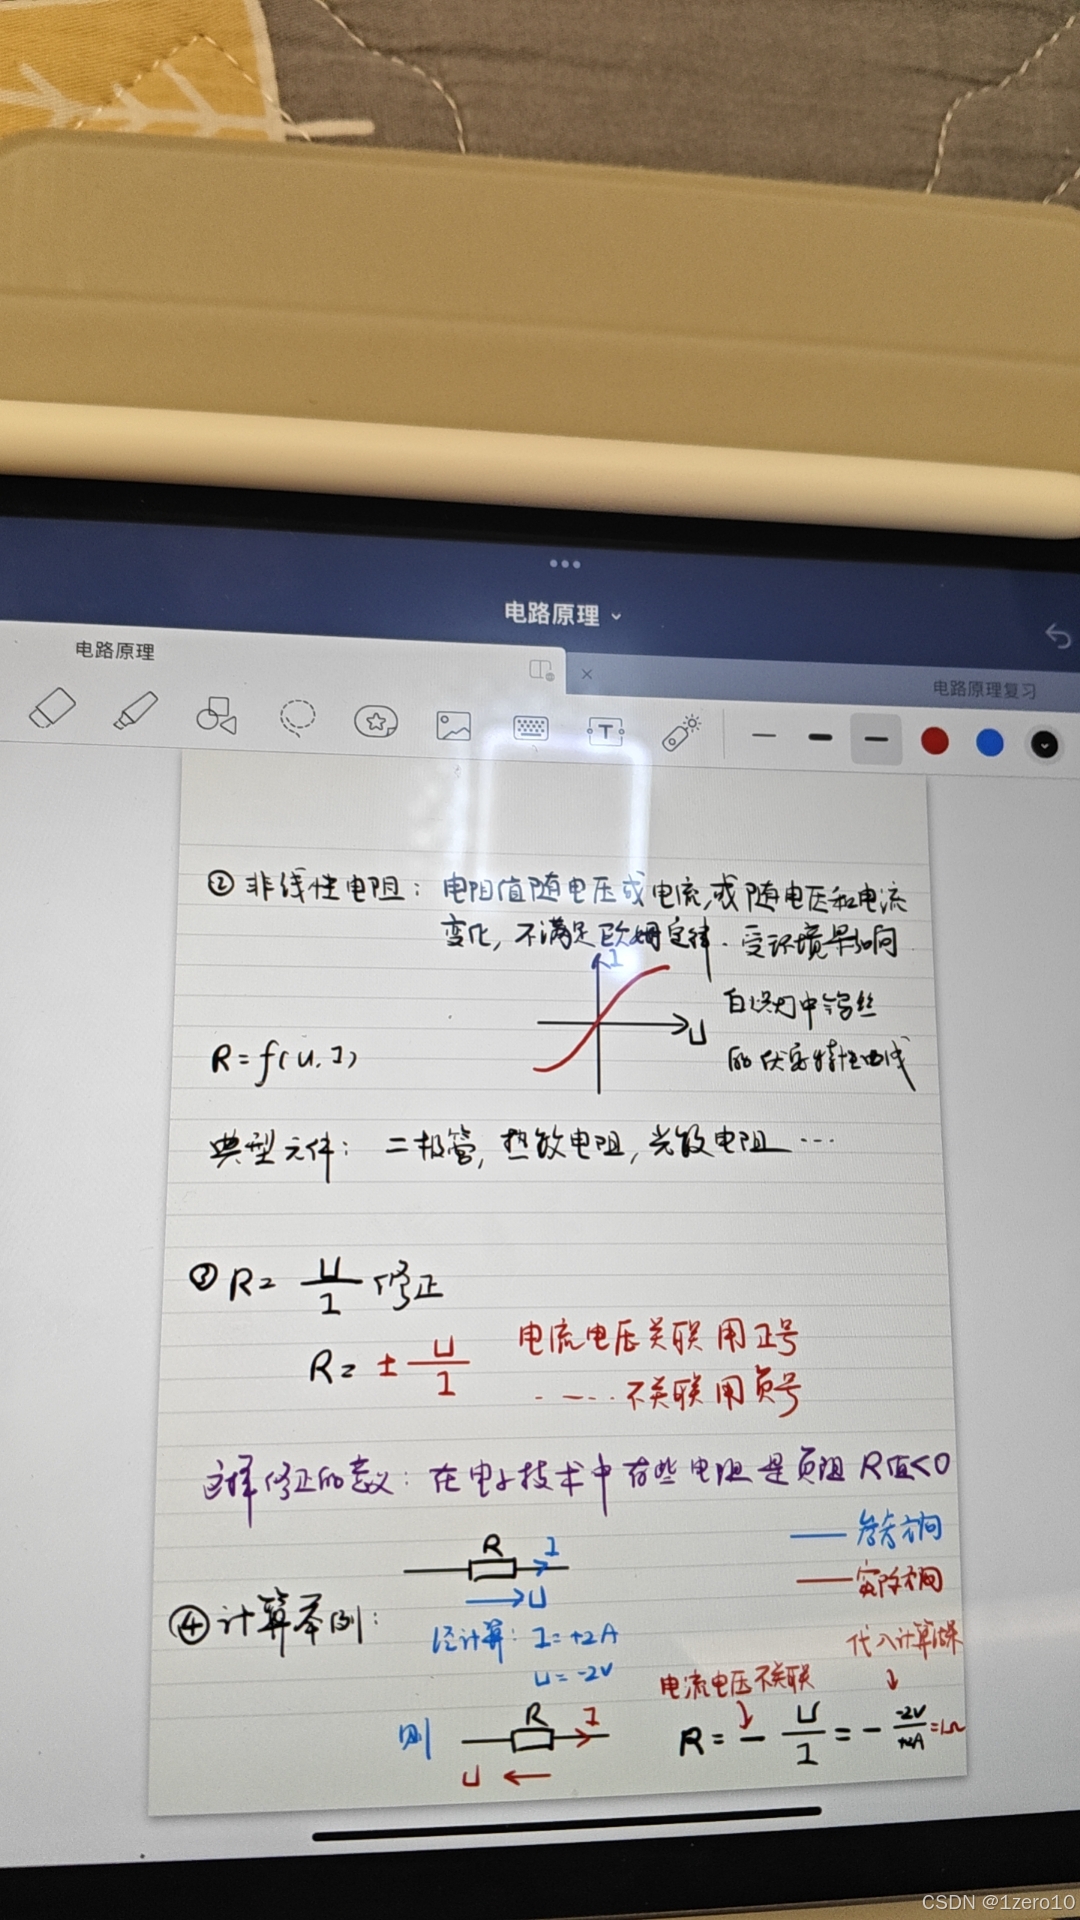 电路原理
电路原理
电路原理复习
② 非线性电阻：电阻值随电压或电流,或随电压和电流
变化，不满足欧姆定律．受环境影响
I
白炽灯中钨丝
U
的伏安特性曲线
R=f(u,I)
典型元件：二极管，热敏电阻，光敏电阻…
③ R= U/I 修正
R= ± U/I 电流电压关联用正号
不关联用负号
这样修正的意义：在电子技术中有些电阻是负阻 R值<0
R I
参考方向
U
实际方向
④计算举例：
经计算：I=+2A
代入计算结果
U=-2V
电流电压不关联
则 R I
R= - U/I = - -2V/+2A =1Ω
U
CSDN @1zero10